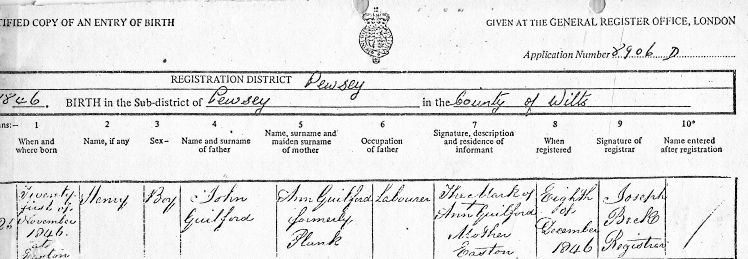 TIFIED COPY OF AN ENTRY OF BIRTH
GIVEN AT THE GENERAL REGISTER OFFICE, LONDON
Application Number 8906 D
REGISTRATION DISTRICT Pewsey
1846. BIRTH in the Sub-district of Pewsey in the County of Wilts
ns:— 1 2 3 4 5 6 7 8 9 10*
When and where born
Name, if any
Sex-
Name and surname of father
Name, surname and maiden surname of mother
Occupation of father
Signature, description and residence of informant
When registered
Signature of registrar
Name entered after registration
Twenty
first of
November
1846.
at
Easton
Henry
Boy
John
Guilford
Ann Guilford
formerly
Plank
Labourer
The Mark of
Ann Guilford
Mother
Easton
Eighth
of
December
1846
Joseph
Registrar